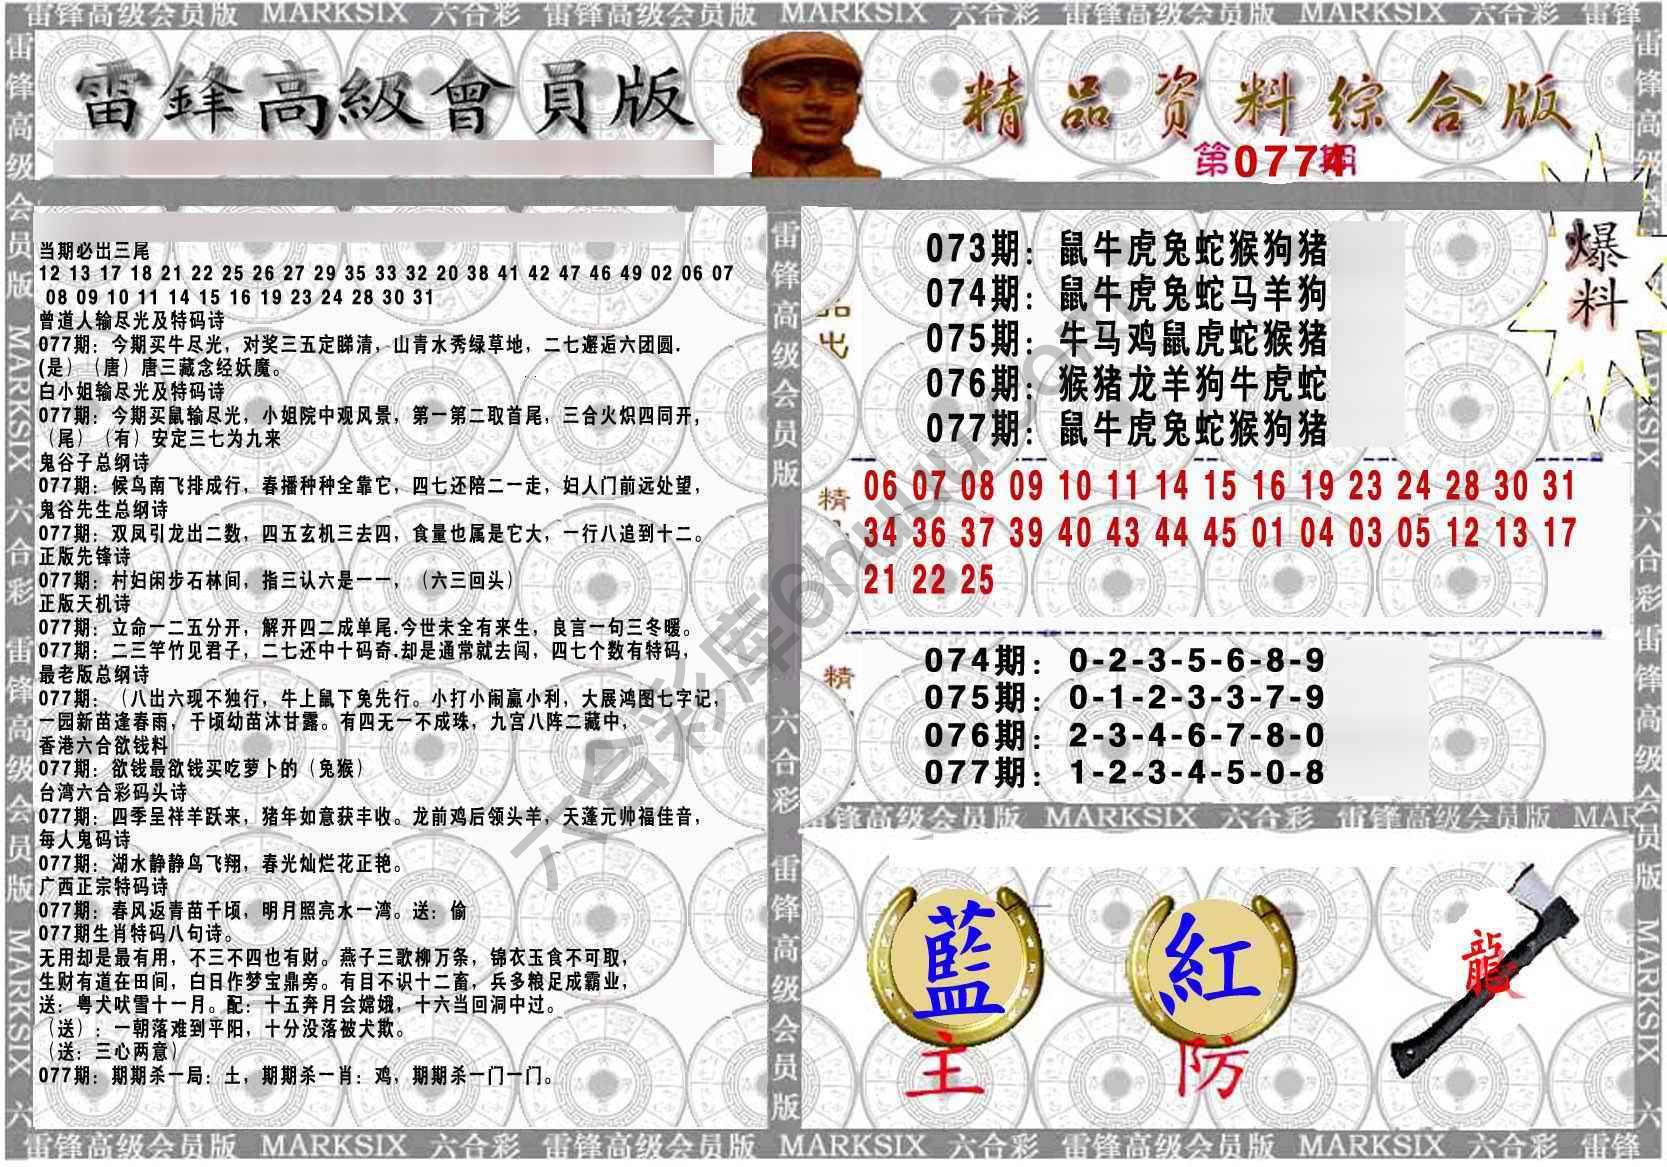 雷锋高级会员版 MARKSIX 六合彩 雷锋高级会员版 MARKSIX 六合彩 雷锋高级会员版 MARKSIX 六合彩 雷锋
雷锋高級會員版
精品资料综合版
第077期
爆料
当期必出三尾
12 13 17 18 21 22 25 26 27 29 35 33 32 20 38 41 42 47 46 49 02 06 07
08 09 10 11 14 15 16 19 23 24 28 30 31
曾道人输尽光及特码诗
077期：今期买牛尽光，对奖三五定睇清，山青水秀绿草地，二七邂逅六团圆.
(是）（唐）唐三藏念经妖魔。
白小姐输尽光及特码诗
077期：今期买鼠输尽光，小姐院中观风景，第一第二取首尾，三合火炽四同开，
（尾）（有）安定三七为九来
鬼谷子总纲诗
077期：候鸟南飞排成行，春播种种全靠它，四七还陪二一走，妇人门前远处望，
鬼谷先生总纲诗
077期：双凤引龙出二数，四五玄机三去四，食量也属是它大，一行八追到十二。
正版先锋诗
077期：村妇闲步石林间，指三认六是一一，（六三回头）
正版天机诗
077期：立命一二五分开，解开四二成单尾.今世未全有来生，良言一句三冬暖。
077期：二三竿竹见君子，二七还中十码奇.却是通常就去闯，四七个数有特码，
最老版总纲诗
077期：（八出六现不独行，牛上鼠下兔先行。小打小闹赢小利，大展鸿图七字记，
一园新苗逢春雨，干顷幼苗沐甘露。有四无一不成珠，九宫八阵二藏中，
香港六合欲钱料
077期：欲钱最欲钱买吃萝卜的（兔猴）
台湾六合彩码头诗
077期：四季呈祥羊跃来，猪年如意获丰收。龙前鸡后领头羊，天蓬元帅福佳音，
每人鬼码诗
077期：湖水静静鸟飞翔，春光灿烂花正艳。
广西正宗特码诗
077期：春风返青苗千顷，明月照亮水一湾。送：偷
077期生肖特码八句诗。
无用却是最有用，不三不四也有财。燕子三歌柳万条，锦衣玉食不可取，
生财有道在田间，白日作梦宝鼎旁。有目不识十二畜，兵多粮足成霸业，
送：粤犬吠雪十一月。配：十五奔月会嫦娥，十六当回洞中过。
（送）：一朝落难到平阳，十分没落被犬欺。
（送：三心两意）
077期：期期杀一局：土，期期杀一肖：鸡，期期杀一门一门。
出
073期：鼠牛虎兔蛇猴狗猪
074期：鼠牛虎兔蛇马羊狗
075期：牛马鸡鼠虎蛇猴猪
076期：猴猪龙羊狗牛虎蛇
077期：鼠牛虎兔蛇猴狗猪
精
06 07 08 09 10 11 14 15 16 19 23 24 28 30 31
34 36 37 39 40 43 44 45 01 04 03 05 12 13 17
21 22 25
精
074期：0-2-3-5-6-8-9
075期：0-1-2-3-3-7-9
076期：2-3-4-6-7-8-0
077期：1-2-3-4-5-0-8
雷锋高级会员版 MARKSIX 六合彩 雷锋高级会员版 MAR
藍
主
紅
防
龍
六合彩库6huku.com
雷锋高级会员版 MARKSIX 六合彩
雷锋高级会员版 MARKSIX 六合彩 雷锋高级会员版 MARKSIX 六合彩 雷锋高级会员版 MARKSIX 六合彩 雷锋